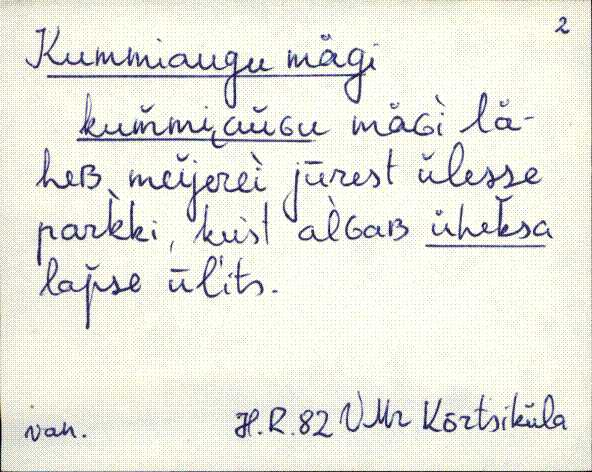 2
Kummiaugu mägi
kum̆mi̮aŭGu mäGi lä-
heB mei̯jerèi jūrest ŭlesse
parк̀ki, kust alGaB ŭhek̆sa
lap̆se ūl'its.
van. H.R.82 VMr Kõrtsiküla